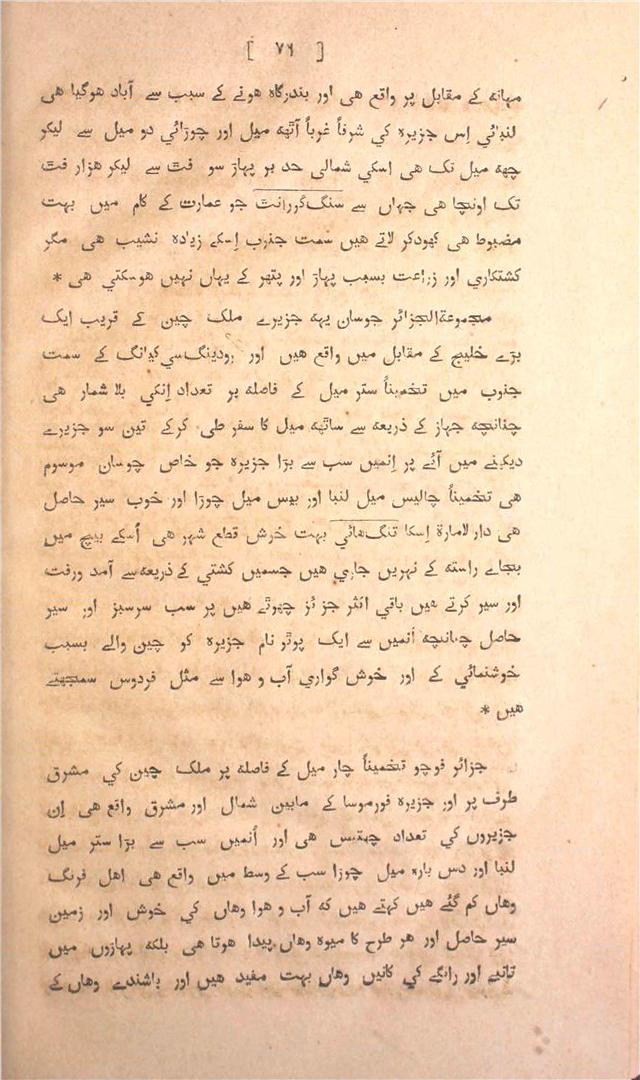 [ ٧٦ ]
مہانہ کے مقابل پر واقع هی اور بندرگاہ هونے کے سبب سے آباد هوگیا هی
لنبائي اِس جزیرہ کي شرقاً غرباً آتھہ میل اور چوڑائي دو میل سے لیکر
چھہ میل تک هی اسکي شمالی حد پر پہاڑ سو فت سے لیکر هزار فت
تک اونچا هی جہاں سے سنگ گورانت جو عمارت کے کام میں بہت
مضبوط هی کھودکر لاتے هیں سمت جنوب اِسکے زیادہ نشیب هی مگر
کشتکاري اور زراعت بسبب پہاڑ اور پتھر کے یہاں نہیں هوسکتي هی *
مجموعةالجزائر جوسان یہہ جزیرے ملک چین کے قریب ایک
بڑے خلیج کے مقابل میں واقع هیں اور رودینگ سي کیانگ کے سمت
جنوب میں تخمیناً ستر میل کے فاصلہ پر تعداد اِنکي بلا شمار هی
چنانچہ جہاز کے ذریعہ سے ساتھہ میل کا سفر طی کرکے تین سو جزیرے
دیکھنے میں آئے پر اِنمیں سب سے بڑا جزیرہ جو خاص چوسان موسوم
هی تخمیناً چالیس میل لنبا اور بیس میل چوڑا اور خوب سیر حاصل
هی دار لامارة اِسکا تنگ هائي بہت خوش قطع شہر هی اُسکے بیچ میں
بجاے راستہ کے نہریں جاري هیں جسمیں کشتي کے ذریعہ سے آمد ورفت
اور سیر کرتے هیں باقي اکثر جزائر چھوٹے هیں پر سب سرسبز اور سیر
حاصل چنانچہ اُنمیں سے ایک پوٹو نام جزیرہ کو چین والے بسبب
خوشنمائي کے اور خوش گواري آب و هوا سے مثل فردوس سمجھتے
هیں *
جزائر فوچو تخمیناً چار میل کے فاصلہ پر ملک چین کي مشرق
طرف پر اور جزیرہ فورموسا کے مابین شمال اور مشرق واقع هی اِن
جزیروں کي تعداد چھتیس هی اور اُنمیں سب سے بڑا ستر میل
لنبا اور دس بارہ میل چوڑا سب کے وسط میں واقع هی اهل فرنگ
وهاں کم گئے هیں کہتے هیں کہ آب و هوا وهاں کي خوش اور زمین
سیر حاصل اور هر طرح کا میوہ وهاں پیدا هوتا هی بلکہ پہاڑوں میں
تانبے اور رانگے کي کانیں وهاں بہت مفید هیں اور باشندے وهاں کے